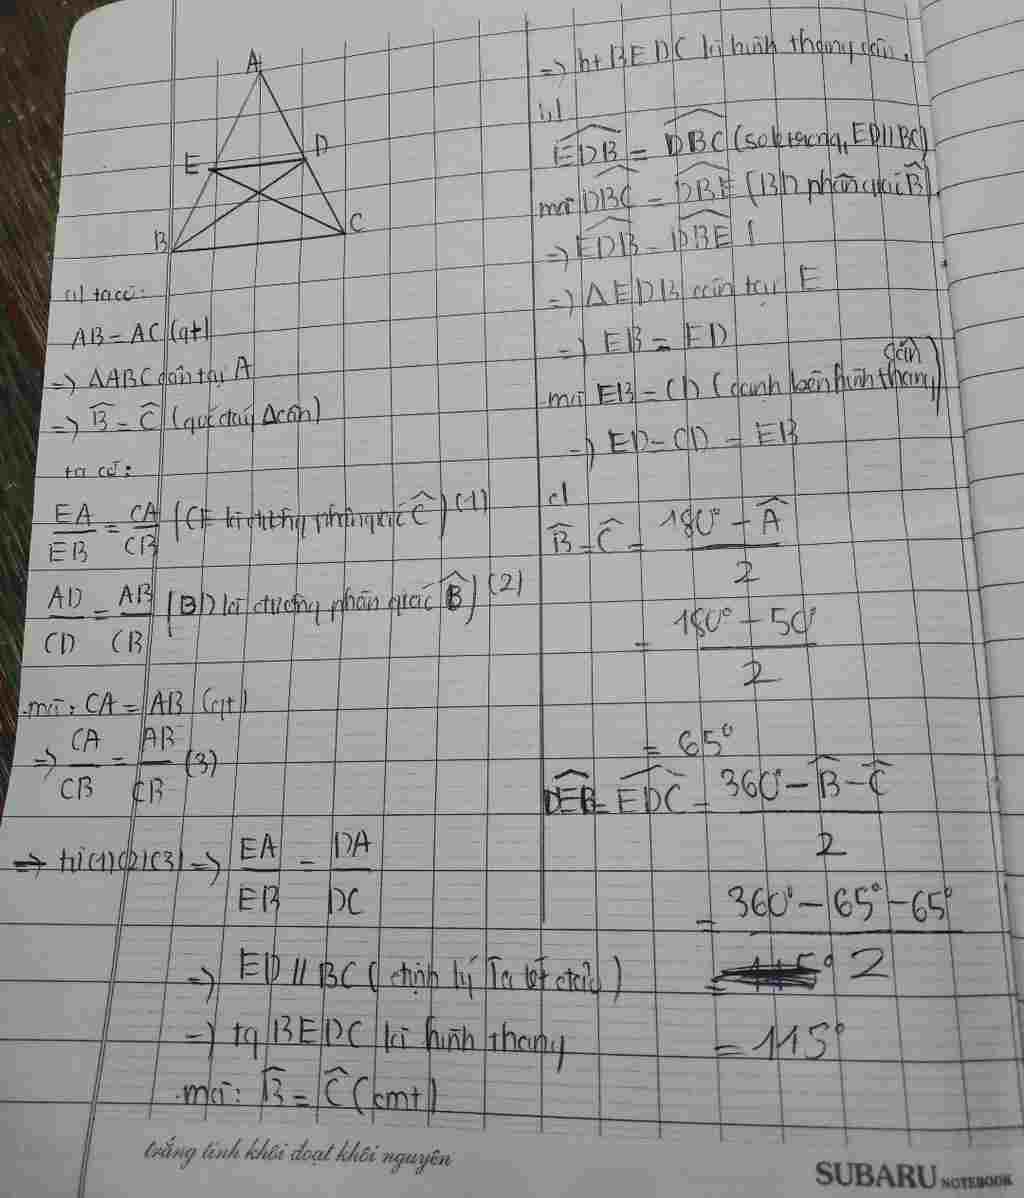 A
E D
B C
a) ta có:
AB = AC (gt)
=> ΔABC cân tại A
=> B̂ = Ĉ (góc đáy Δ cân)
ta có:
EA/EB = CA/CB (CE là đường phân giác Ĉ) (1)
AD/CD = AB/CB (BD là đường phân giác B̂) (2)
mà: CA = AB (gt)
=> CA/CB = AB/CB (3)
=> từ (1) (2) (3) => EA/EB = DA/DC
=> ED // BC (định lý Ta lét đảo)
=> tg BEDC là hình thang
mà: B̂ = Ĉ (cmt)
=> ht BEDC là hình thang cân.
b)
EDB = DBC (so le trong, ED//BC)
mà DBC = DBE (BD phân giác B̂)
=> EDB = DBE
=> ΔEDB cân tại E
=> EB = ED
mà EB = CD (cạnh bên hình thang cân)
=> ED = CD = EB
c)
B̂ = Ĉ = (180° - Â)/2
= (180° - 50°)/2
= 65°
DEB = EDC = (360° - B̂ - Ĉ)/2
= (360° - 65° - 65°)/2
= 115°
trắng tinh khôi đoạt khôi nguyên
SUBARU NOTEBOOK